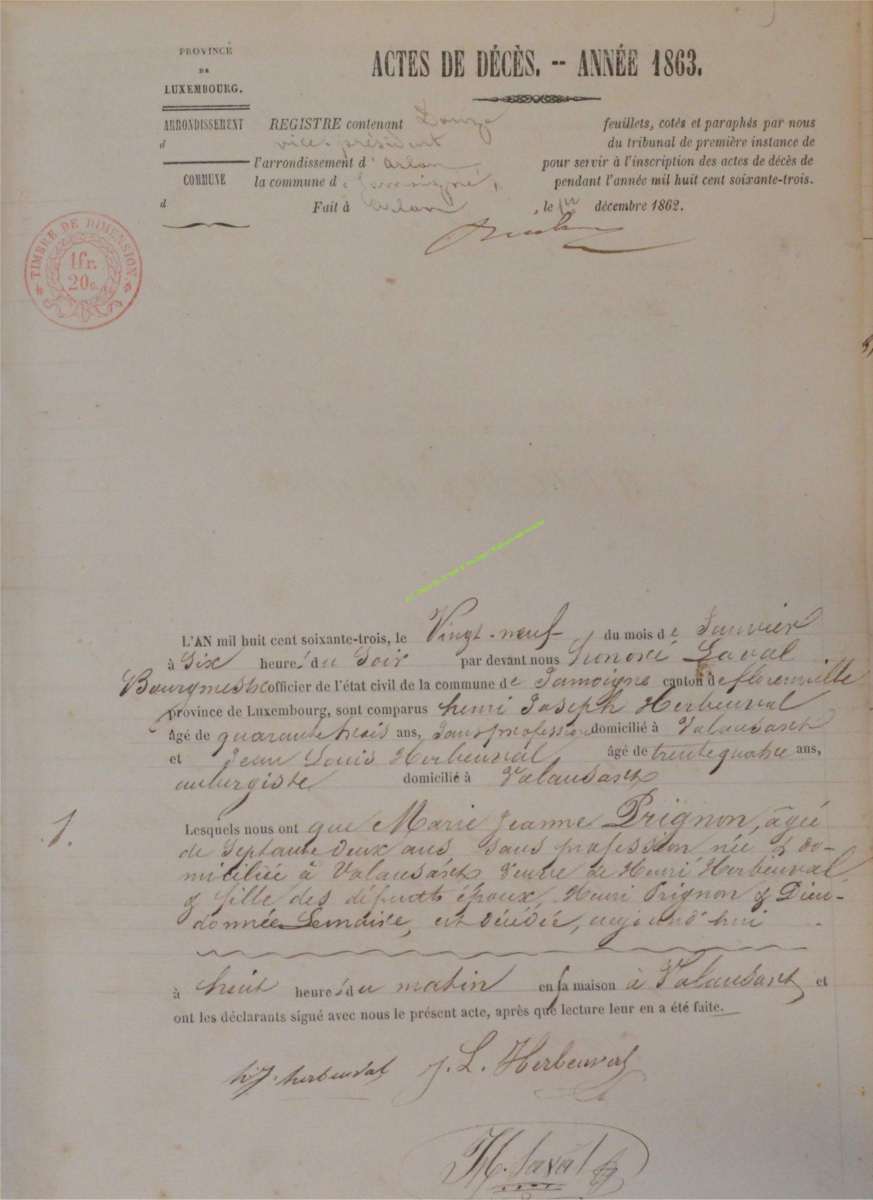 PROVINCE
DE
LUXEMBOURG.
ARRONDISSEMENT
d
COMMUNE
d
ACTES DE DÉCÈS. -- ANNÉE 1863.
REGISTRE contenant Douze feuillets, cotés et paraphés par nous
vice-président du tribunal de première instance de
l'arrondissement d'Arlon pour servir à l'inscription des actes de décès de
la commune de Jamoigne, pendant l'année mil huit cent soixante-trois.
Fait à Arlon, le décembre 1862.
TIMBRE DE DIMENSION.
1fr.
20c.
L'AN mil huit cent soixante-trois, le Vingt-neuf du mois de Janvier
à Six heures du Soir par devant nous Honoré Laval
Bourgmestre officier de l'état civil de la commune de Jamoigne canton de florenville
province de Luxembourg, sont comparus henri Joseph Herbeuval
âgé de quarante trois ans, Sans profession domicilié à Valansart
et Jean Louis Herbeuval âgé de trente quatre ans,
aubergiste domicilié à Valansart
1.
Lesquels nous ont que Marie Jeanne Prignon, âgée
de Septante deux ans sans profession née & do-
miciliée à Valansart veuve de Henri Herbeuval
& fille des défunts époux, Henri Prignon & Dieu-
donnée Lemaire, est décédée, aujourd'hui
à huit heures du matin en sa maison à Valansart et
ont les déclarants signé avec nous le présent acte, après que lecture leur en a été faite.
h. J. herbeuval J. L. Herbeuval
H. Laval